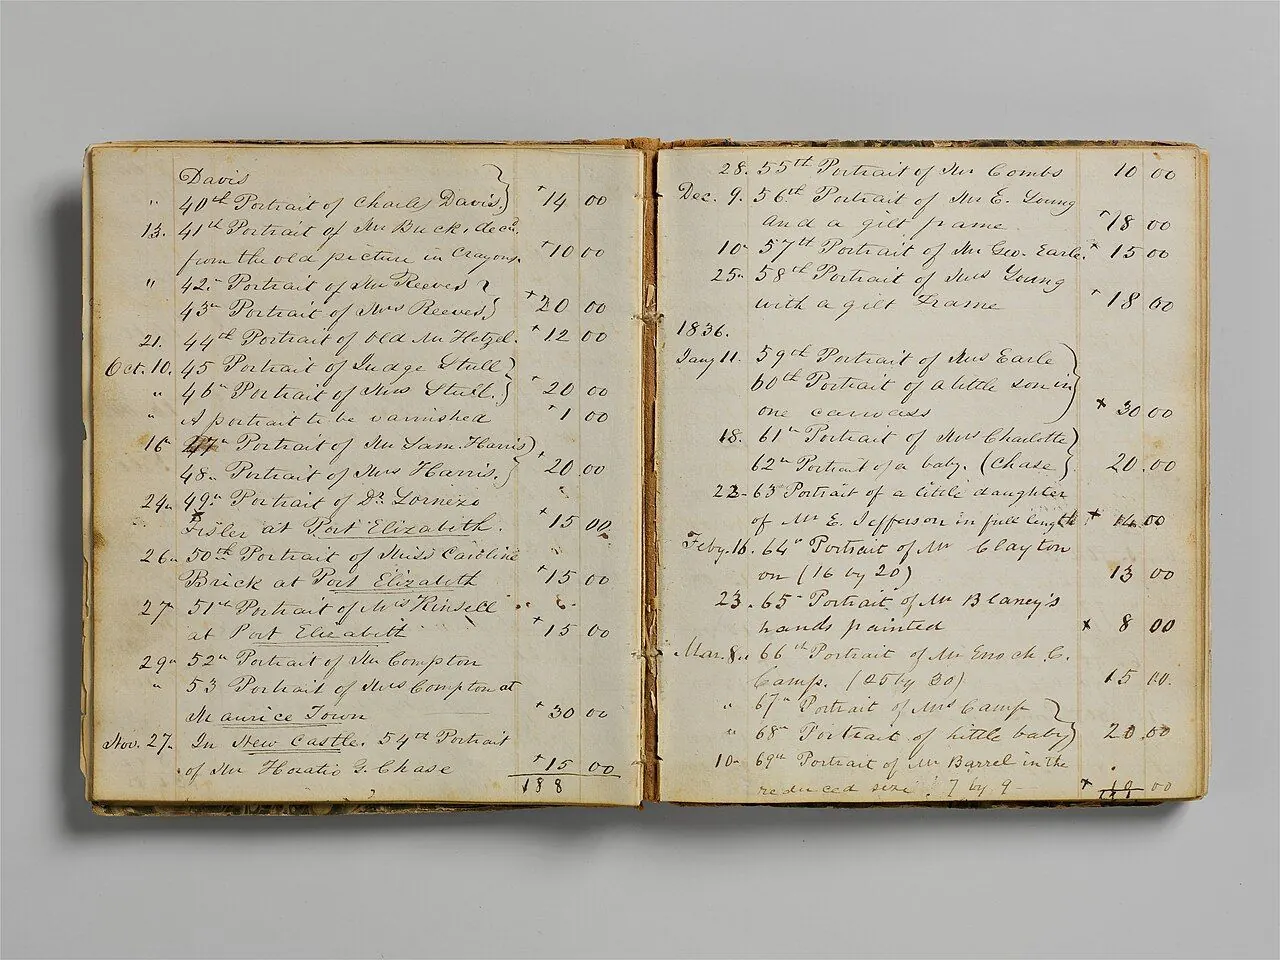 Davis
" 40th Portrait of Charles Davis. 14 00
13. 41th Portrait of Mr Brick, decd.
from the old picture in Crayons. 10 00
" 42n Portrait of Mr Reeves
43n Portrait of Mrs Reeves. 20 00
21. 44th Portrait of Old Mr Hetzel. 12 00
Oct. 10. 45 Portrait of Judge Stull
" 46n Portrait of Mrs Stull. 20 00
" A portrait to be varnished 1 00
16 47n Portrait of Mr Sam. Harris
48n Portrait of Mrs Harris. 20 00
24 49n Portrait of Dr Lornezo
Fisler at Port Elizabeth. 15 00
26 50th Portrait of Miss Caroline
Brick at Port Elizabeth 15 00
27 51st Portrait of Mrs Kinsell
at Port Elizabith 15 00
29 52n Portrait of Mr Compton
" 53 Portrait of Mrs Compton at
Maurice Town 30 00
Nov. 27. In New Castle. 54th Portrait
of Mr Horatio G. Chase 15 00
188
28. 55th Portrait of Mr Combs 10 00
Dec. 9. 56th Portrait of Mr E. Young
and a gilt frame 18 00
10 57th Portrait of Mr Geo. Earle. 15 00
25 58th Portrait of Mrs Young
with a gilt Frame 18 00
1836.
Jany 11. 59th Portrait of Mrs Earle
60th Portrait of a little son in
one canvass 30 00
18. 61n Portrait of Mrs Charlotte
62n Portrait of a baby. (Chase 20.00
22 63 Portrait of a little daughter
of Mr E. Jefferson in full length 00
Feby. 16. 64n Portrait of Mr Clayton
on (16 by 20) 13 00
23. 65 Portrait of Mr Blaney's
hands painted 8 00
Mar. 8. 66th Portrait of Mr Enoch C.
Camp. (25 by 30) 15 00.
" 67n Portrait of Mrs Camp
" 68n Portrait of little baby 20.00
10 69n Portrait of Mr Barrel in the
reduced size. 7 by 9 10 00